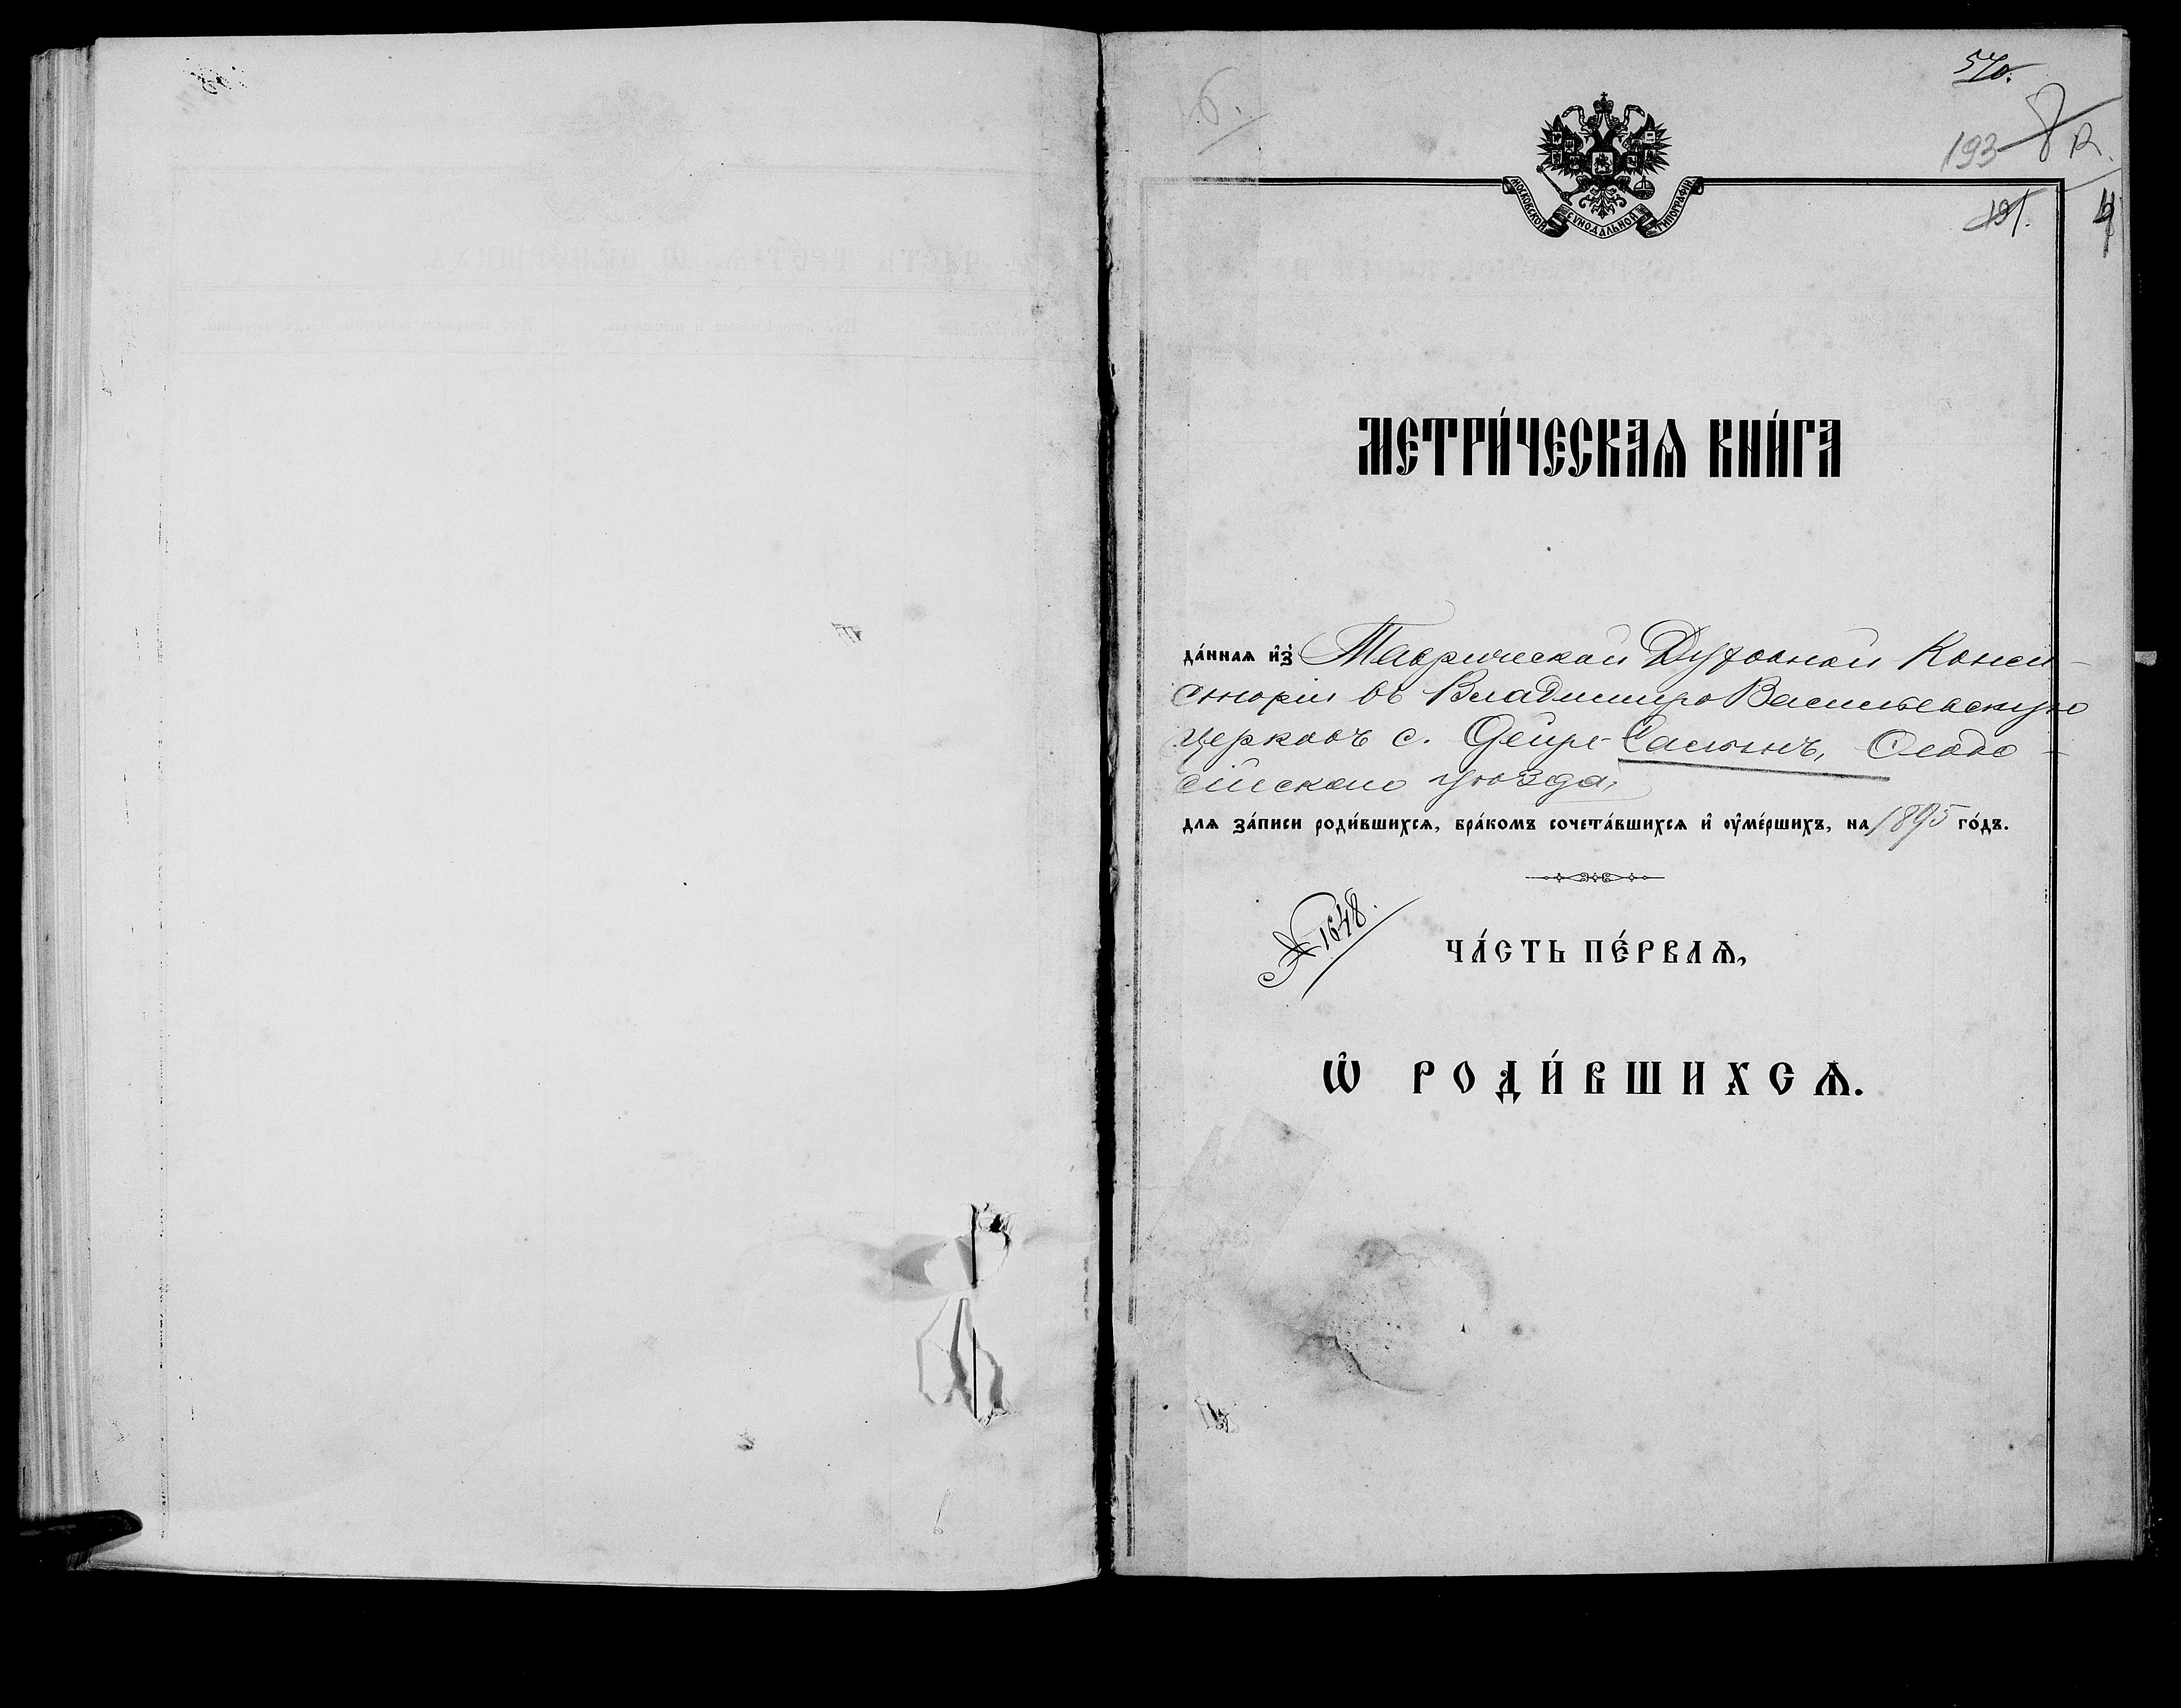 540.
193
МОСКОВСКОЙ СѴНОДАЛЬНОЙ ТИПОГРАФІИ
191.
МЕТРИ́ЧЕСКАѦ КНИ́ГА
да́ннаѧ и҆з̾ Таврической Духовной Конси-
сторіи въ Владимиро Васильевскую
церковь с. Сеитъ, Ѳеодо-
сійскаго уѣзда,
длѧ за́писи роди́вшихсѧ, бра́комъ сочета́вшихсѧ и҆ ᲂу҆ме́ршихъ, на 1895 го́дъ.
№ 1648.
ЧА́СТЬ ПЕ́РВАѦ,
Ѡ҆ РОДИ́ВШИХСѦ.